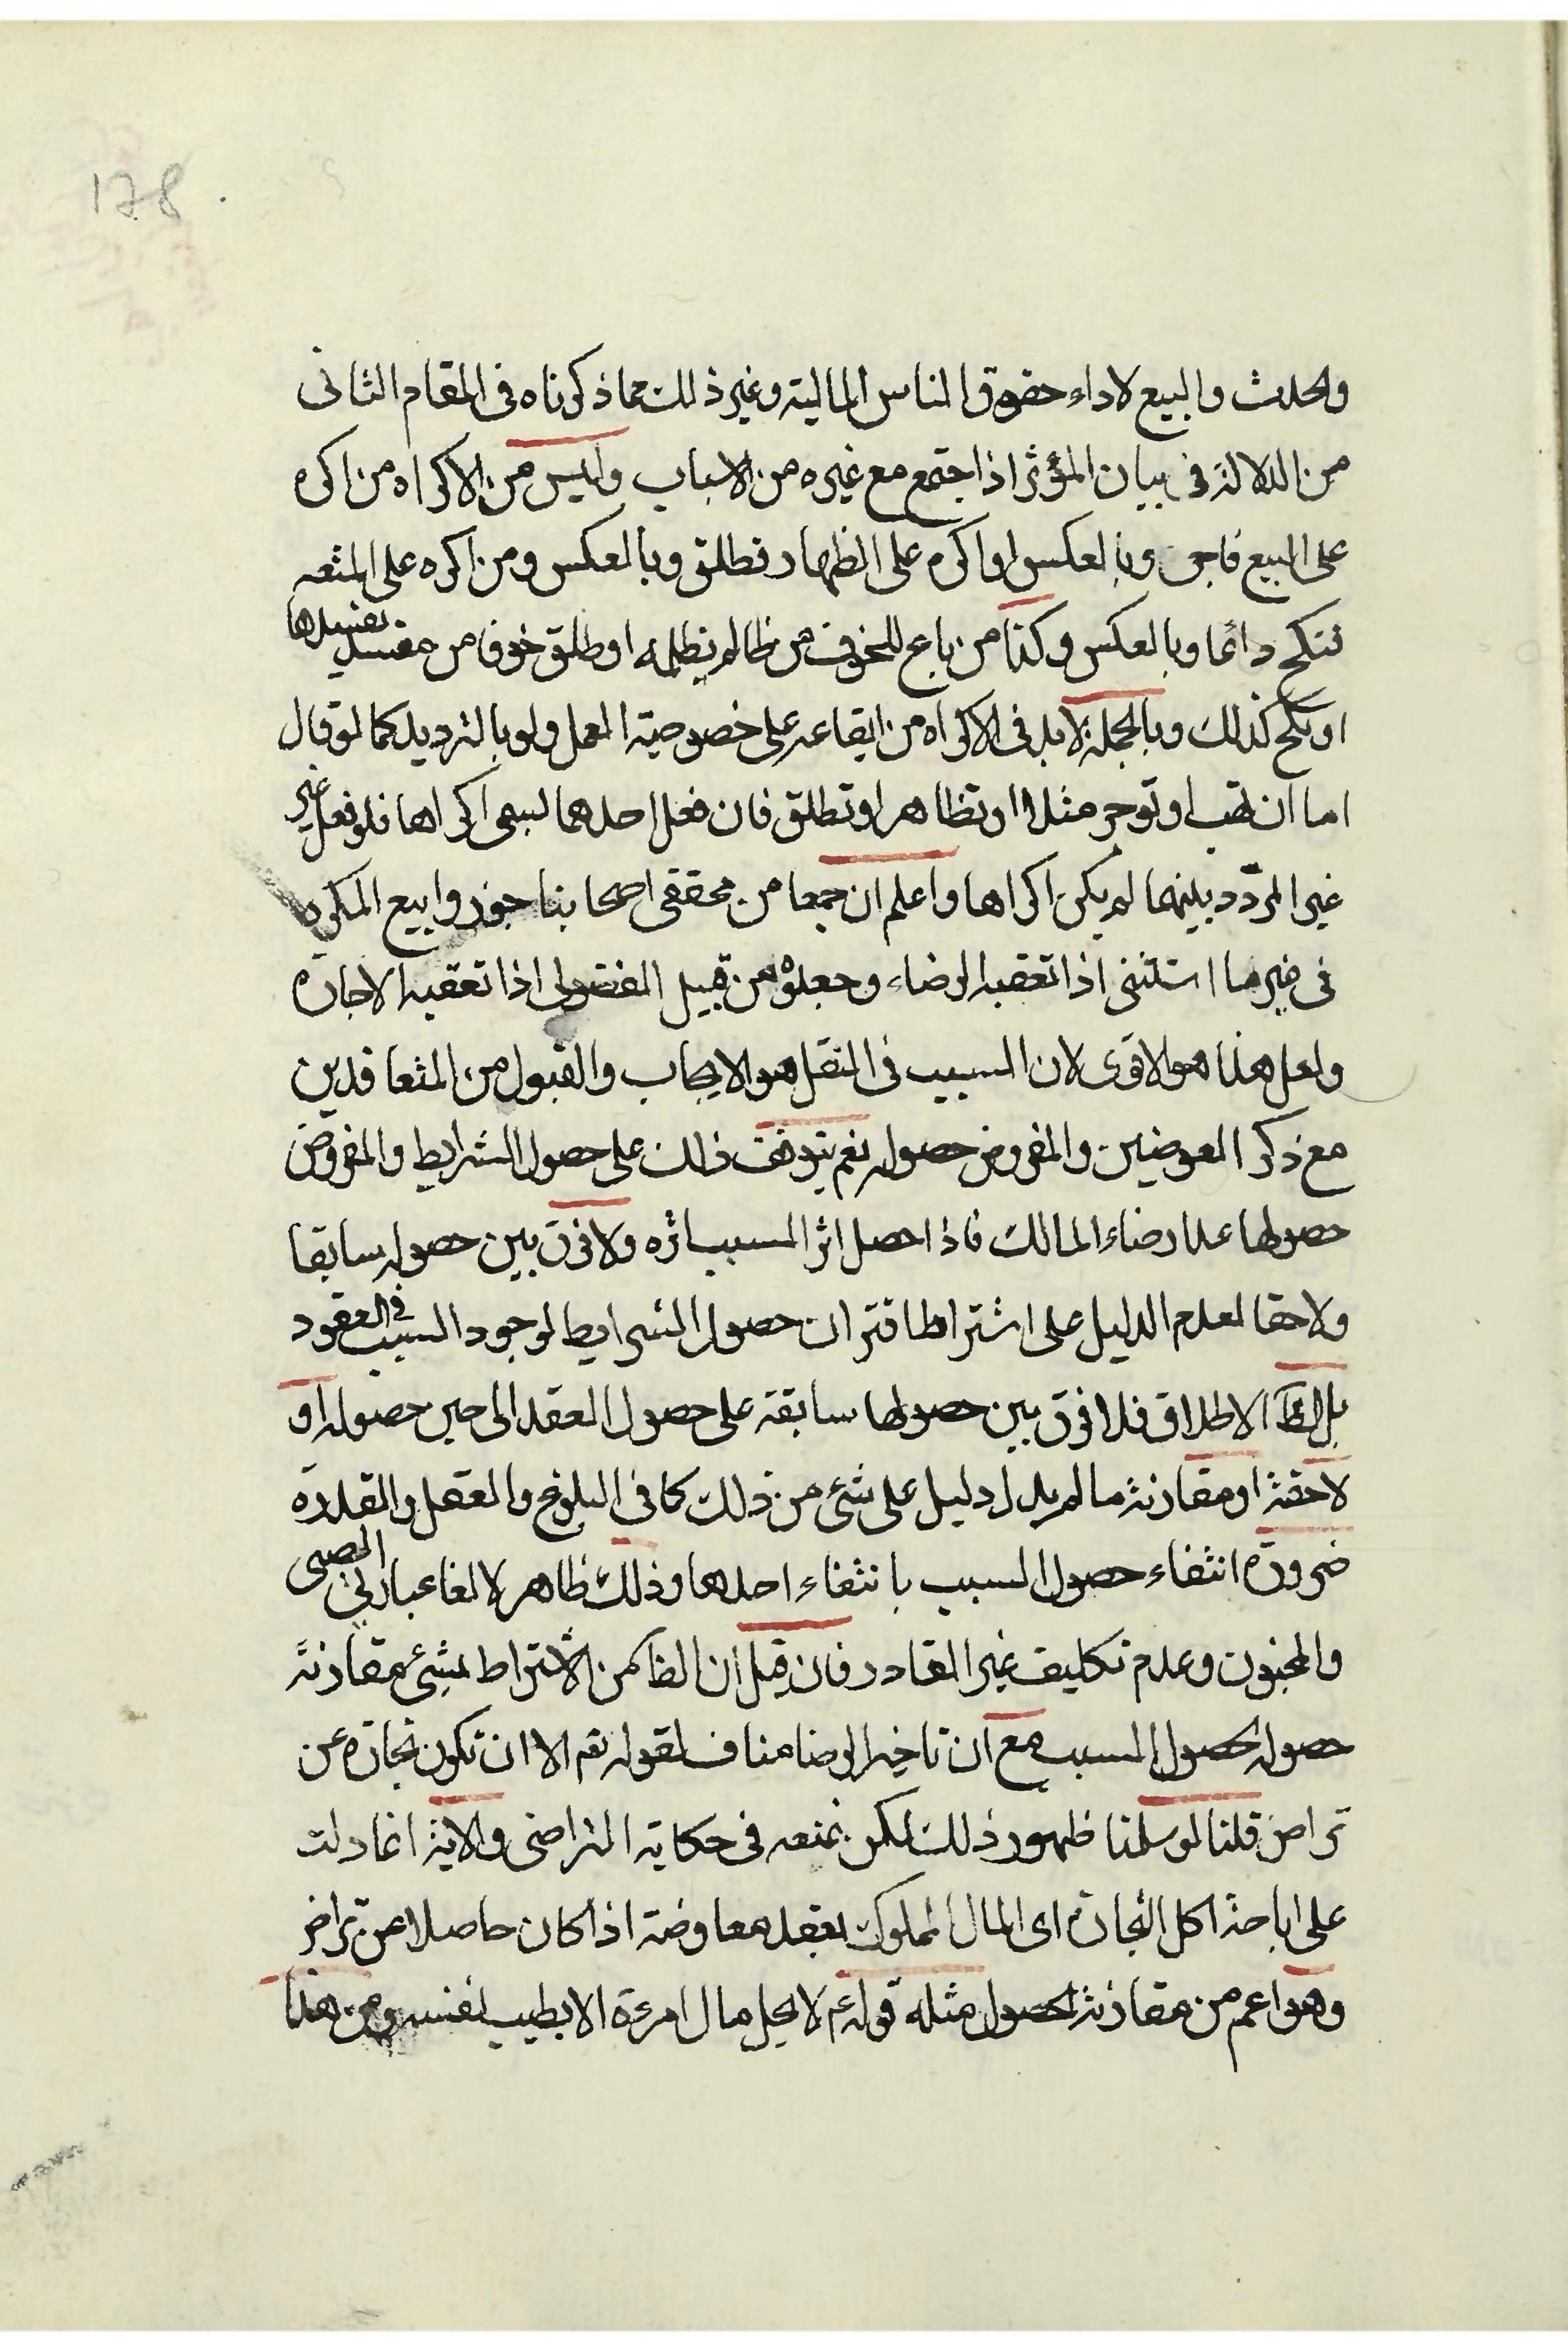 178
والحدث والبيع لاداء حقوق الناس المالية وغير ذلك مما ذكرناه فى المقام الثانى
من الدلالة فى بيان المؤثر اذا اجتمع مع غيره من الاسباب وليس من الاكراه من اكره
على البيع فاجر وبالعكس او اكره على الظهار فطلق وبالعكس ومن اكره على المتعه
فنكح دائما وبالعكس وكذا من باع للخوف من ظالم يظلمه او طلق خوفا من مفسد يفسدها
او نكح كذلك وبالجملة لابد فى الاكراه من ايقاعه على خصوصية العمل ولو بالترديد كما لو قال
اما ان تهب او توجر مثلا او تظاهر او تطلق فان فعل احدهما لسمى اكراها فلو فعل غير
غير المردد بينهما لم يكن اكراها واعلم ان جمعا من محققى اصحابنا جوزوا بيع المكره
فى غير ما استثنى اذا تعقبه الرضاء وجعلوه من قبيل الفضولى اذا تعقبه الاجازه
ولعل هذا هو الاقوى لان السبب فى النقل هو الايجاب والقبول من المتعاقدين
مع ذكر العوضين والمفروض حصوله نعم يتوقف ذلك على حصول الشرايط والمفروض
حصولها عدا رضاء المالك فاذا حصل اثر السبب اثره ولا فرق بين حصوله سابقا
ولاحقا لعدم الدليل على اشتراط اقتران حصول الشرايط لوجود السبب فى العقود
بل الظ الاطلاق فلا فرق بين حصولها سابقة على حصول العقد الى حين حصوله او
لاحقة او مقارنة ما لم يدل دليل على شئ من ذلك كما فى البلوغ والعقل والقدره
ضرورة انتفاء حصول السبب بانتفاء احدها وذلك ظاهر لالغا عبارتى الصبى
والمجنون وعدم تكليف غير القادر فان قيل ان الظاكمن الاشتراط بشئ مقارنة
حصوله لحصول المسبب مع ان تاخير الرضا مناف لقوله تعم الا ان تكون تجارة عن
تراض قلنا لو سلمنا ظهور ذلك لكن نمنعه فى حكاية التراضى والاية انما دلت
على اباحة اكل التجارة اى المال المملوك بعقد معاوضة اذا كان حاصلا عن تراض
وهو اعم من مقارنة الحصول مثله قوله ع لا يحل مال امرءة الا بطيب نفسه ومن هذا